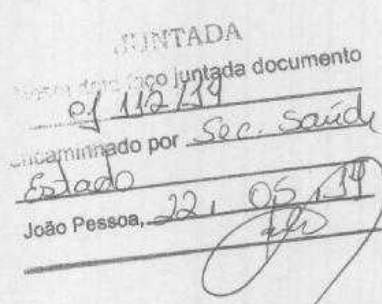 JUNTADA
Nesta data faço juntada documento
of 112/14
Encaminhado por Sec. Saúde
Estado
João Pessoa, 22, 05, 14